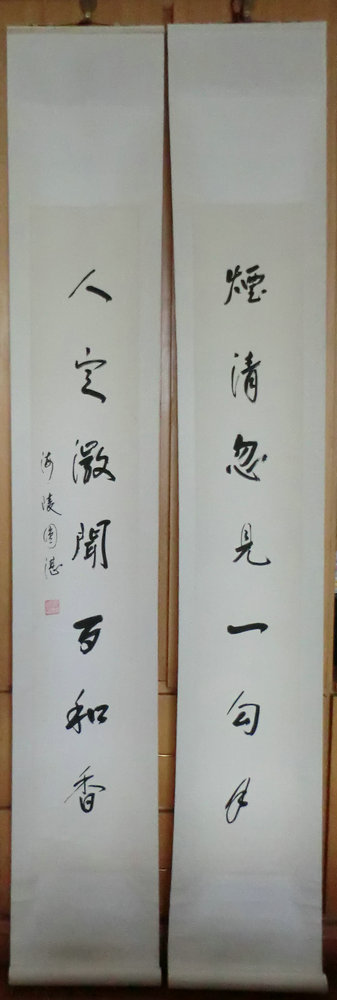 煙清忽見一勾月
人定微聞百和香
海陵圓湛